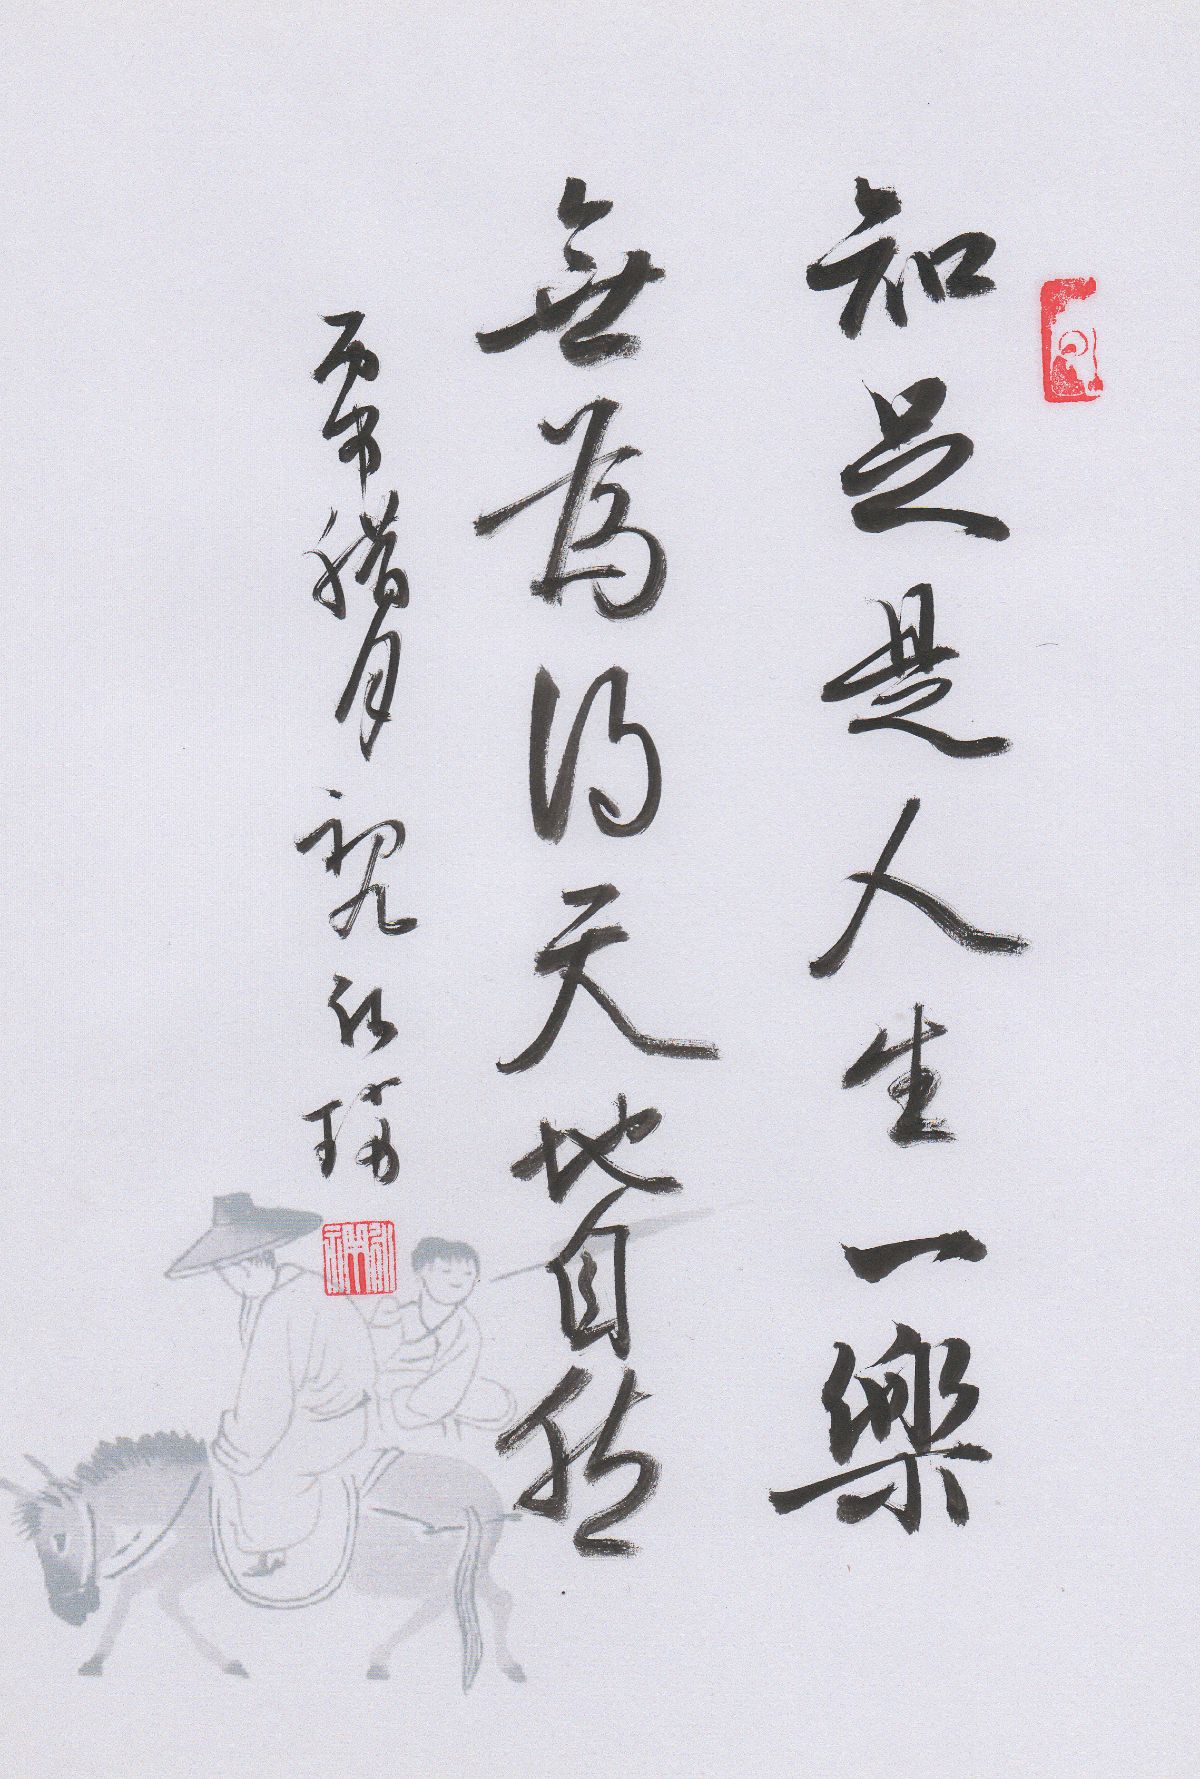 知足是人生一樂
無為得天地自然
丙申腊月